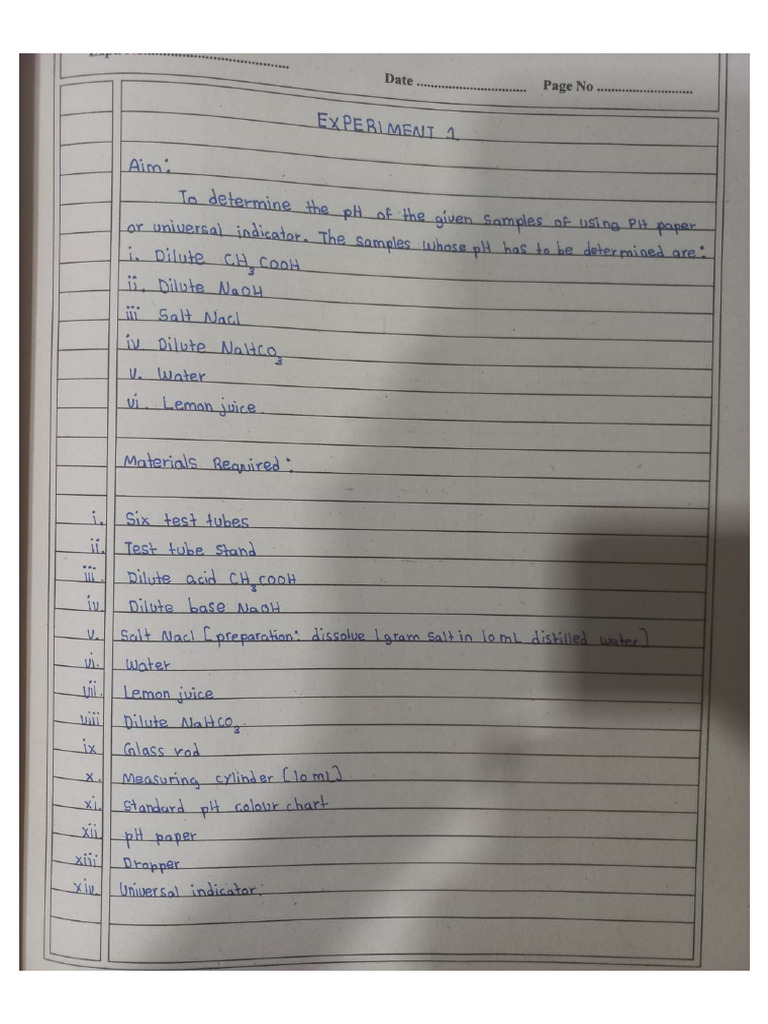 Date ............................ Page No ............................
EXPERIMENT 1
Aim:
To determine the pH of the given samples of using PH paper
or universal indicator. The samples whose pH has to be determined are:
i. Dilute CH₃COOH
ii. Dilute NaOH
iii Salt Nacl
iv Dilute NaHCO₃
v. Water
vi. Lemon juice
Materials Required:
i. Six test tubes
ii. Test tube stand
iii. Dilute acid CH₃COOH
iv. Dilute base NaOH
v. Salt Nacl [preparation: dissolve 1 gram salt in 10 mL distilled water]
vi. Water
vii. Lemon juice
viii Dilute NaHCO₃
ix Glass rod
x. Measuring cylinder [10 mL]
xi. Standard pH colour chart
xii. pH paper
xiii Dropper
xiv. Universal indicator.